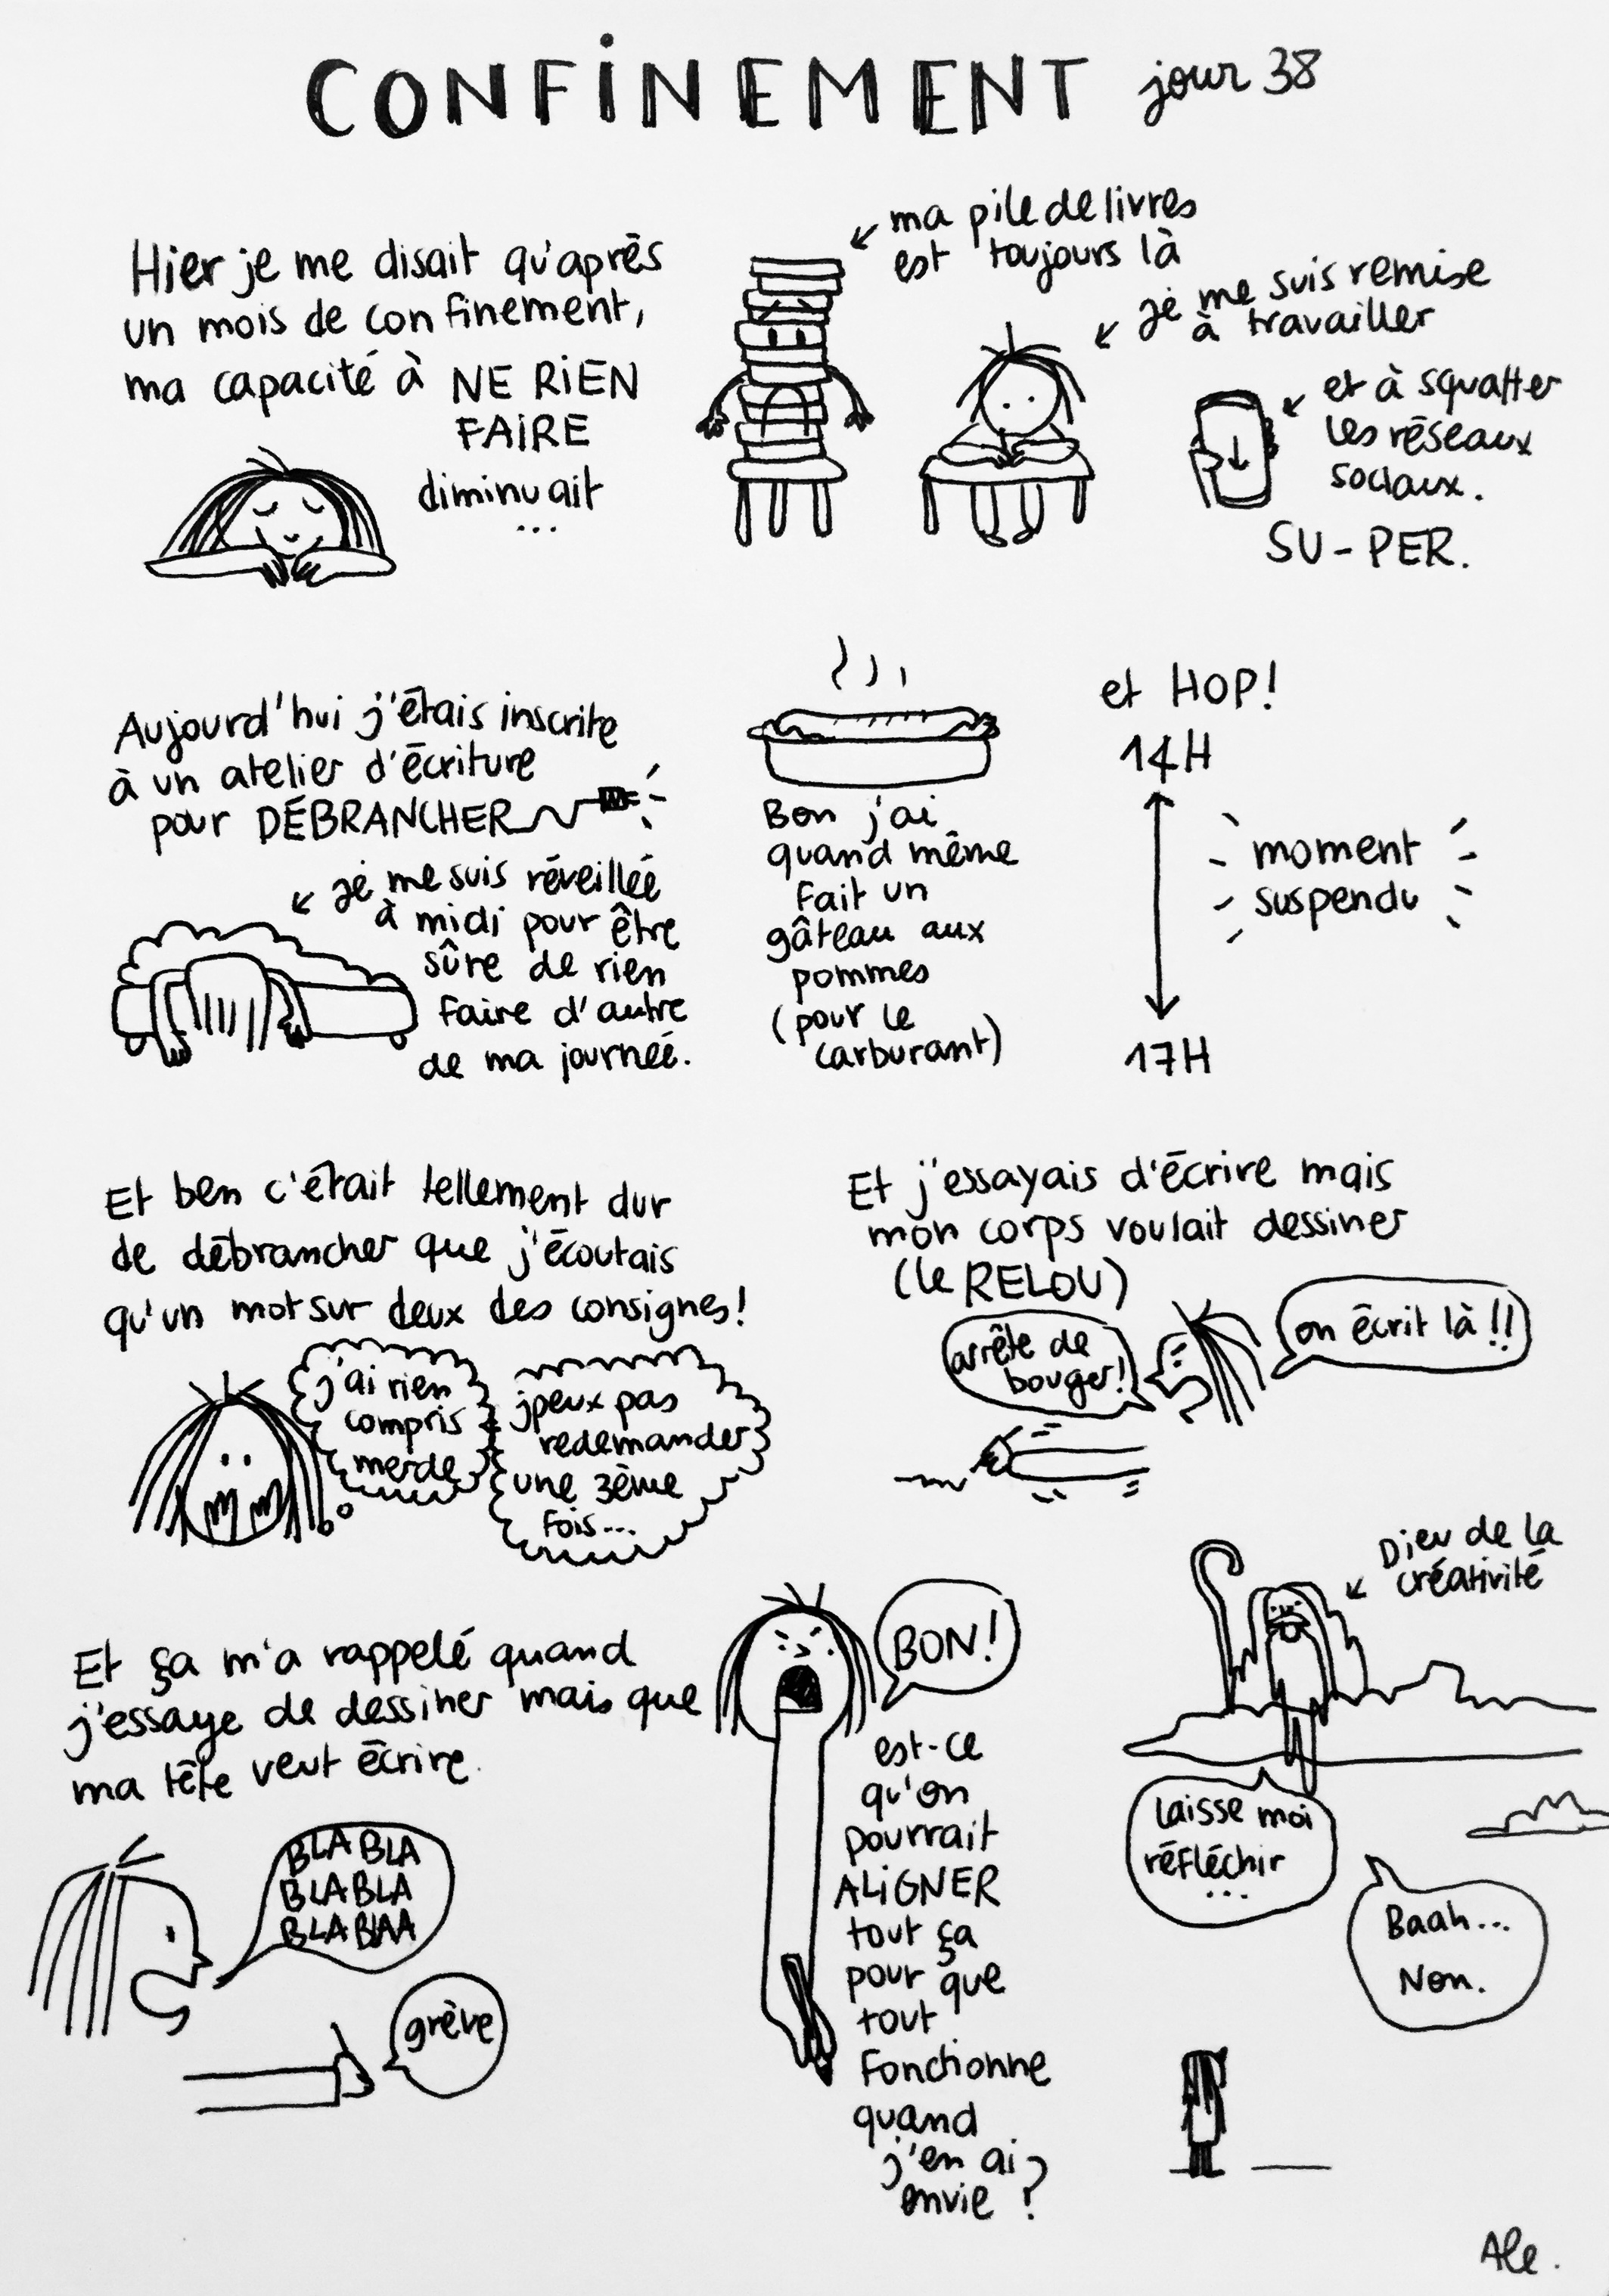 CONFINEMENT jour 38
Hier je me disait qu'après
un mois de confinement,
ma capacité à NE RIEN
FAIRE
diminuait
...
ma pile de livres
est toujours là
je me suis remise
à travailler
et à squatter
les réseaux
sociaux.
SU-PER.
Aujourd'hui j'étais inscrite
à un atelier d'écriture
pour DÉBRANCHER
je me suis réveillée
à midi pour être
sûre de rien
faire d'autre
de ma journée.
Bon j'ai
quand même
fait un
gâteau aux
pommes
(pour le
carburant)
et HOP!
14H
moment
suspendu
17H
Et ben c'était tellement dur
de débrancher que j'écoutais
qu'un mot sur deux des consignes!
j'ai rien
compris
merde
jpeux pas
redemander
une 3ème
fois...
Et j'essayais d'écrire mais
mon corps voulait dessiner
(le RELOU)
arrête de
bouger!
on écrit là!!
Et ça m'a rappelé quand
j'essaye de dessiner mais que
ma tête veut écrire.
BLABLA
BLABLA
BLABLAA
grève
BON!
est-ce
qu'on
pourrait
ALIGNER
tout ça
pour que
tout
fonctionne
quand
j'en ai
envie?
Dieu de la
créativité
laisse moi
réfléchir
...
Baah...
Non.
Ale.